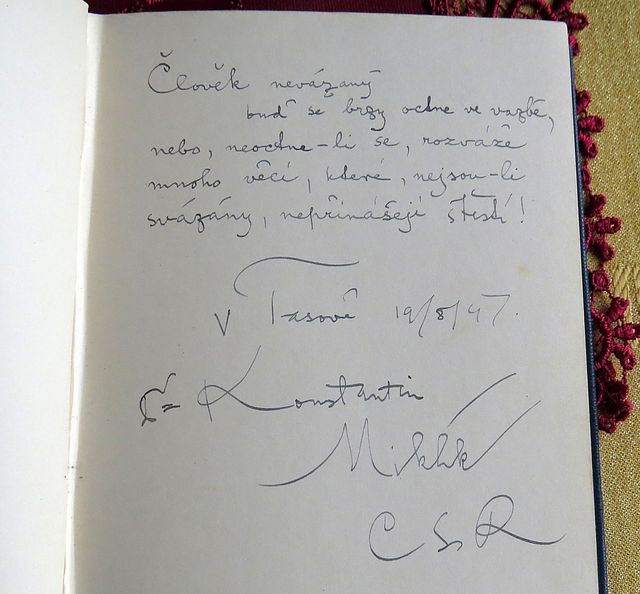 Člověk nevázaný
buď se brzy octne ve vazbě,
nebo, neoctne-li se, rozváže
mnoho věcí, které, nejsou-li
svázány, nepřinášejí štěstí!
V Tasově 19/8/47.
Konstantin
ČSR